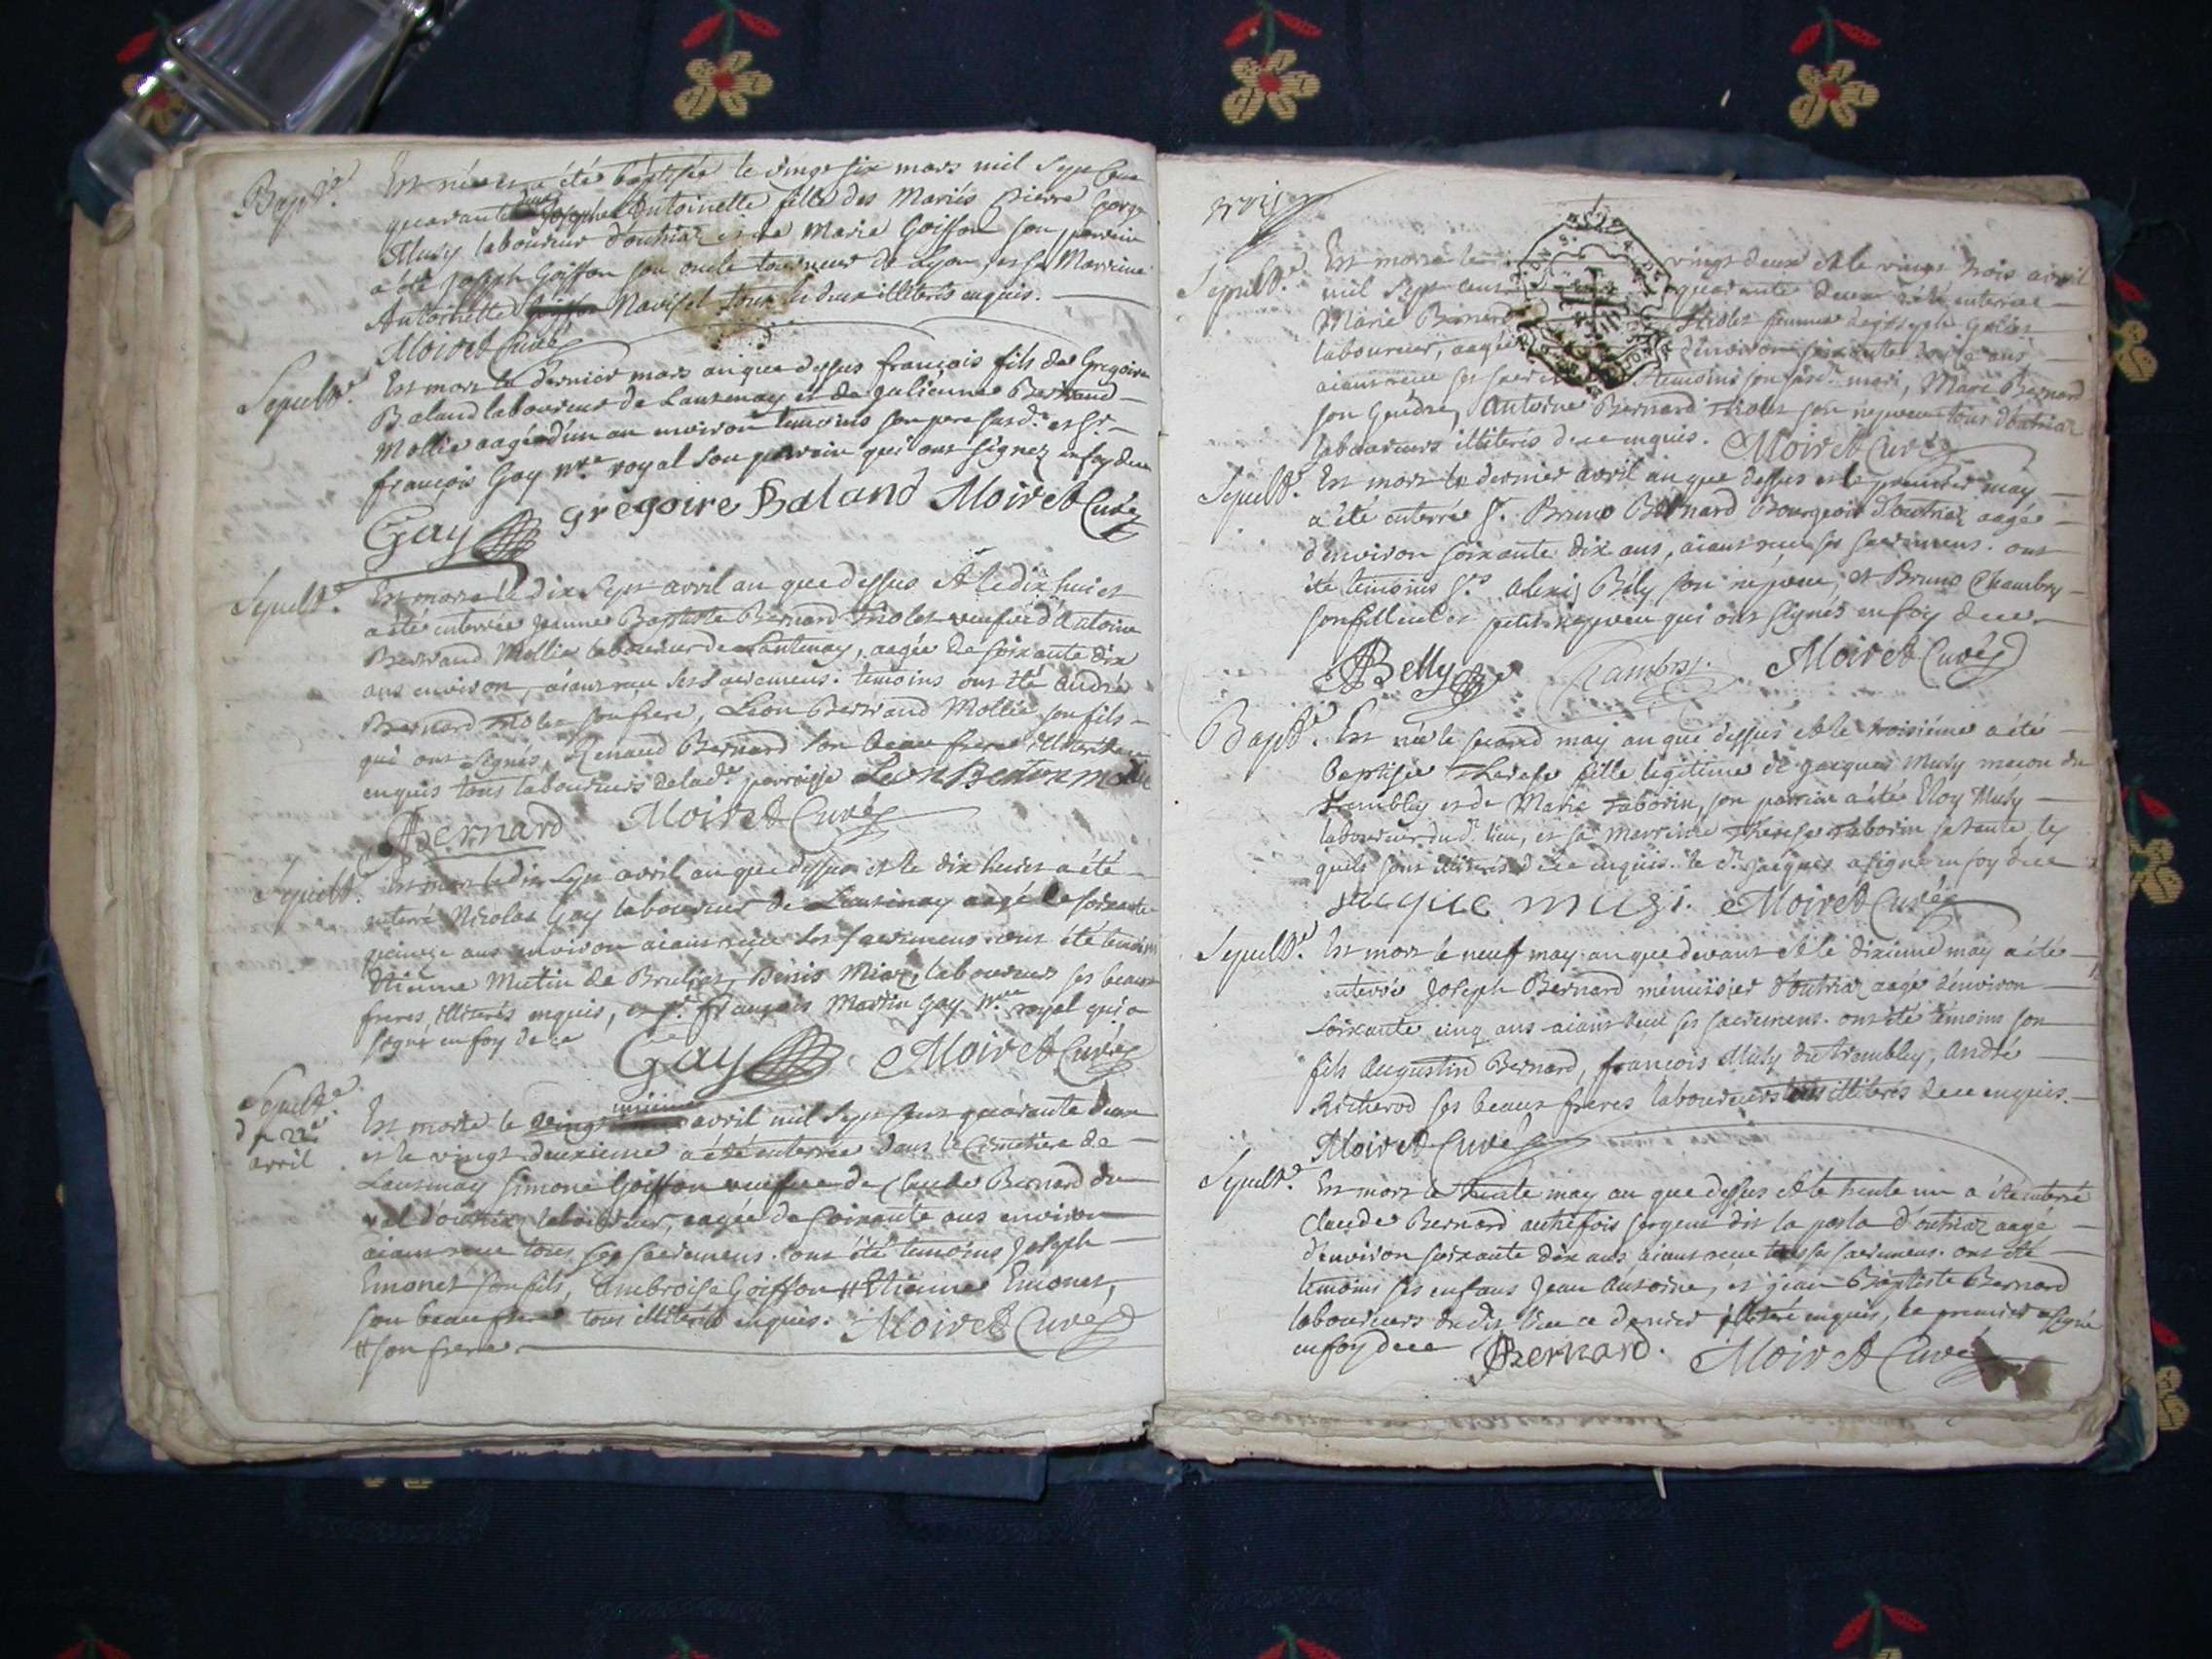 Bapt.e Est née et a été baptisée le vingt six mars mil sept cent
quarante deux Josephe Antoinette fille des Mariés Pierre George
Musy laboureur d'outriaz et de Marie Goiffon son parrain
a été Joseph Goiffon son oncle tourneur de Lyon, et sa Marraine
Antoinette tous les deux illiterés enquis.
Moiret Curé
Sepult.e Est mort le dernier mars an que dessus françois fils de Gregoire
Baland laboureur de Lantenay et de Julienne Bertrand
Mollie aagé d'un an environ temoins son pere susd.t et Sr
françois Gay n.re royal son parrain qui ont signez en foy de ce
Gay Gregoire Baland Moiret Curé
Sepult.e Est morte le dix sept avril an que dessus et le dix huict
a été enterrée Jeanne Baptiste Bernard Triolet veufve d'Antoine
Bertrand Mollie laboureur de Lantenay, aagée de soixante dix
ans environ, aiant reçu ses sacremens. temoins ont été André
Bernard Triolet son frere, Léon Bertrand Mollie son fils
qui ont signés, Renaud Bernard son beau frere illiteré
enquis tous laboureurs de lad.e parroisse Leon Bertran Molie
ABernard Moiret Curé
Sepult.e Est mort le dix sept avril an que dessus et le dix huict a été
enterré Nicolas Gay laboureur de Lantenay aagé de soixante
quinze ans environ aiant reçu ses sacremens. ont été temoins
Etienne Mutin de Brulat, Denis Miaz, laboureurs ses beaux
freres, illiterés enquis, et Sr. françois Martin Gay n.re royal qui a
signé en foy de ce Gay Moiret Curé
Sepult.e
du 22e
avril
Est morte le vingt unieme avril mil sept cent quarante deux
et le vingt deuxieme a été enterrée dans le Cimetiere de
Lantenay Simone Goiffon veufve de Claude Bernard du
val d'outriaz, laboureur, aagée de soixante ans environ
aiant reçue tous ses sacremens. ont été temoins Joseph
Emonet son fils, Ambroise Goiffon # Etienne Emonet,
son beau frere tous illiterés enquis. Moiret Curé
# son frere.
Sepult.e Est morte le vingt deux et le vingt trois avril
mil sept cent quarante deux a été enterrée
Marie Bernard Triolet femme de Joseph
laboureur, aagée d'environ soixante ans
aiant reçu ses sacre temoins son susd.t mari, Marc Bernard
son Gendre, Antoine Bernard Triolet son nepveu tous d'outriaz
laboureurs illiterés de ce enquis. Moiret Curé
Sepult.e Est mort le dernier avril an que dessus et le premier may
a été enterré Sr. Bruno Bernard Bourgeois d'outriaz aagé
d'environ soixante dix ans, aiant reçu ses sacremens. ont
été temoins Srs. Alexis Bély son nepveu, et Bruno Chambry
son fillieul et petit nepveu qui ont signés en foy de ce
ABelly Chambry Moiret Curé
Bapt.e Est née le second may an que dessus et le troisiéme a été
baptisée Therese fille legitime de Jacques Musy maçon du
Trembley et de Marie Taborin, son parrain a été Eloy Musy
laboureur dud.t lieu, et sa marraine Therese Taborin sa tante, les
quels sont illiterés de ce enquis. le d.t Jacques a signé en foy de ce
Jacque musi. Moiret Curé
Sepult.e Est mort le neuf may an que devant et le dixieme may a été
enterré Joseph Bernard menuisier d'outriaz aagé d'environ
soixante cinq ans aiant reçu ses sacremens. ont été temoins son
fils Augustin Bernard, françois Musy du trembley, André
Richerod ses beaux freres laboureurs tous illiterés de ce enquis.
Moiret Curé
Sepult.e Est mort le trente may an que dessus et le trente un a été enterré
Claude Bernard autrefois sergent dit la porta d'outriaz aagé
d'environ soixante dix ans, aiant reçue tous ses sacremens. ont été
temoins ses enfans Jean Antoine, et jean Baptiste Bernard
laboureurs dudit lieu ce dernier illiteré enquis, le premier a signé
en foy de ce JABernard. Moiret Curé